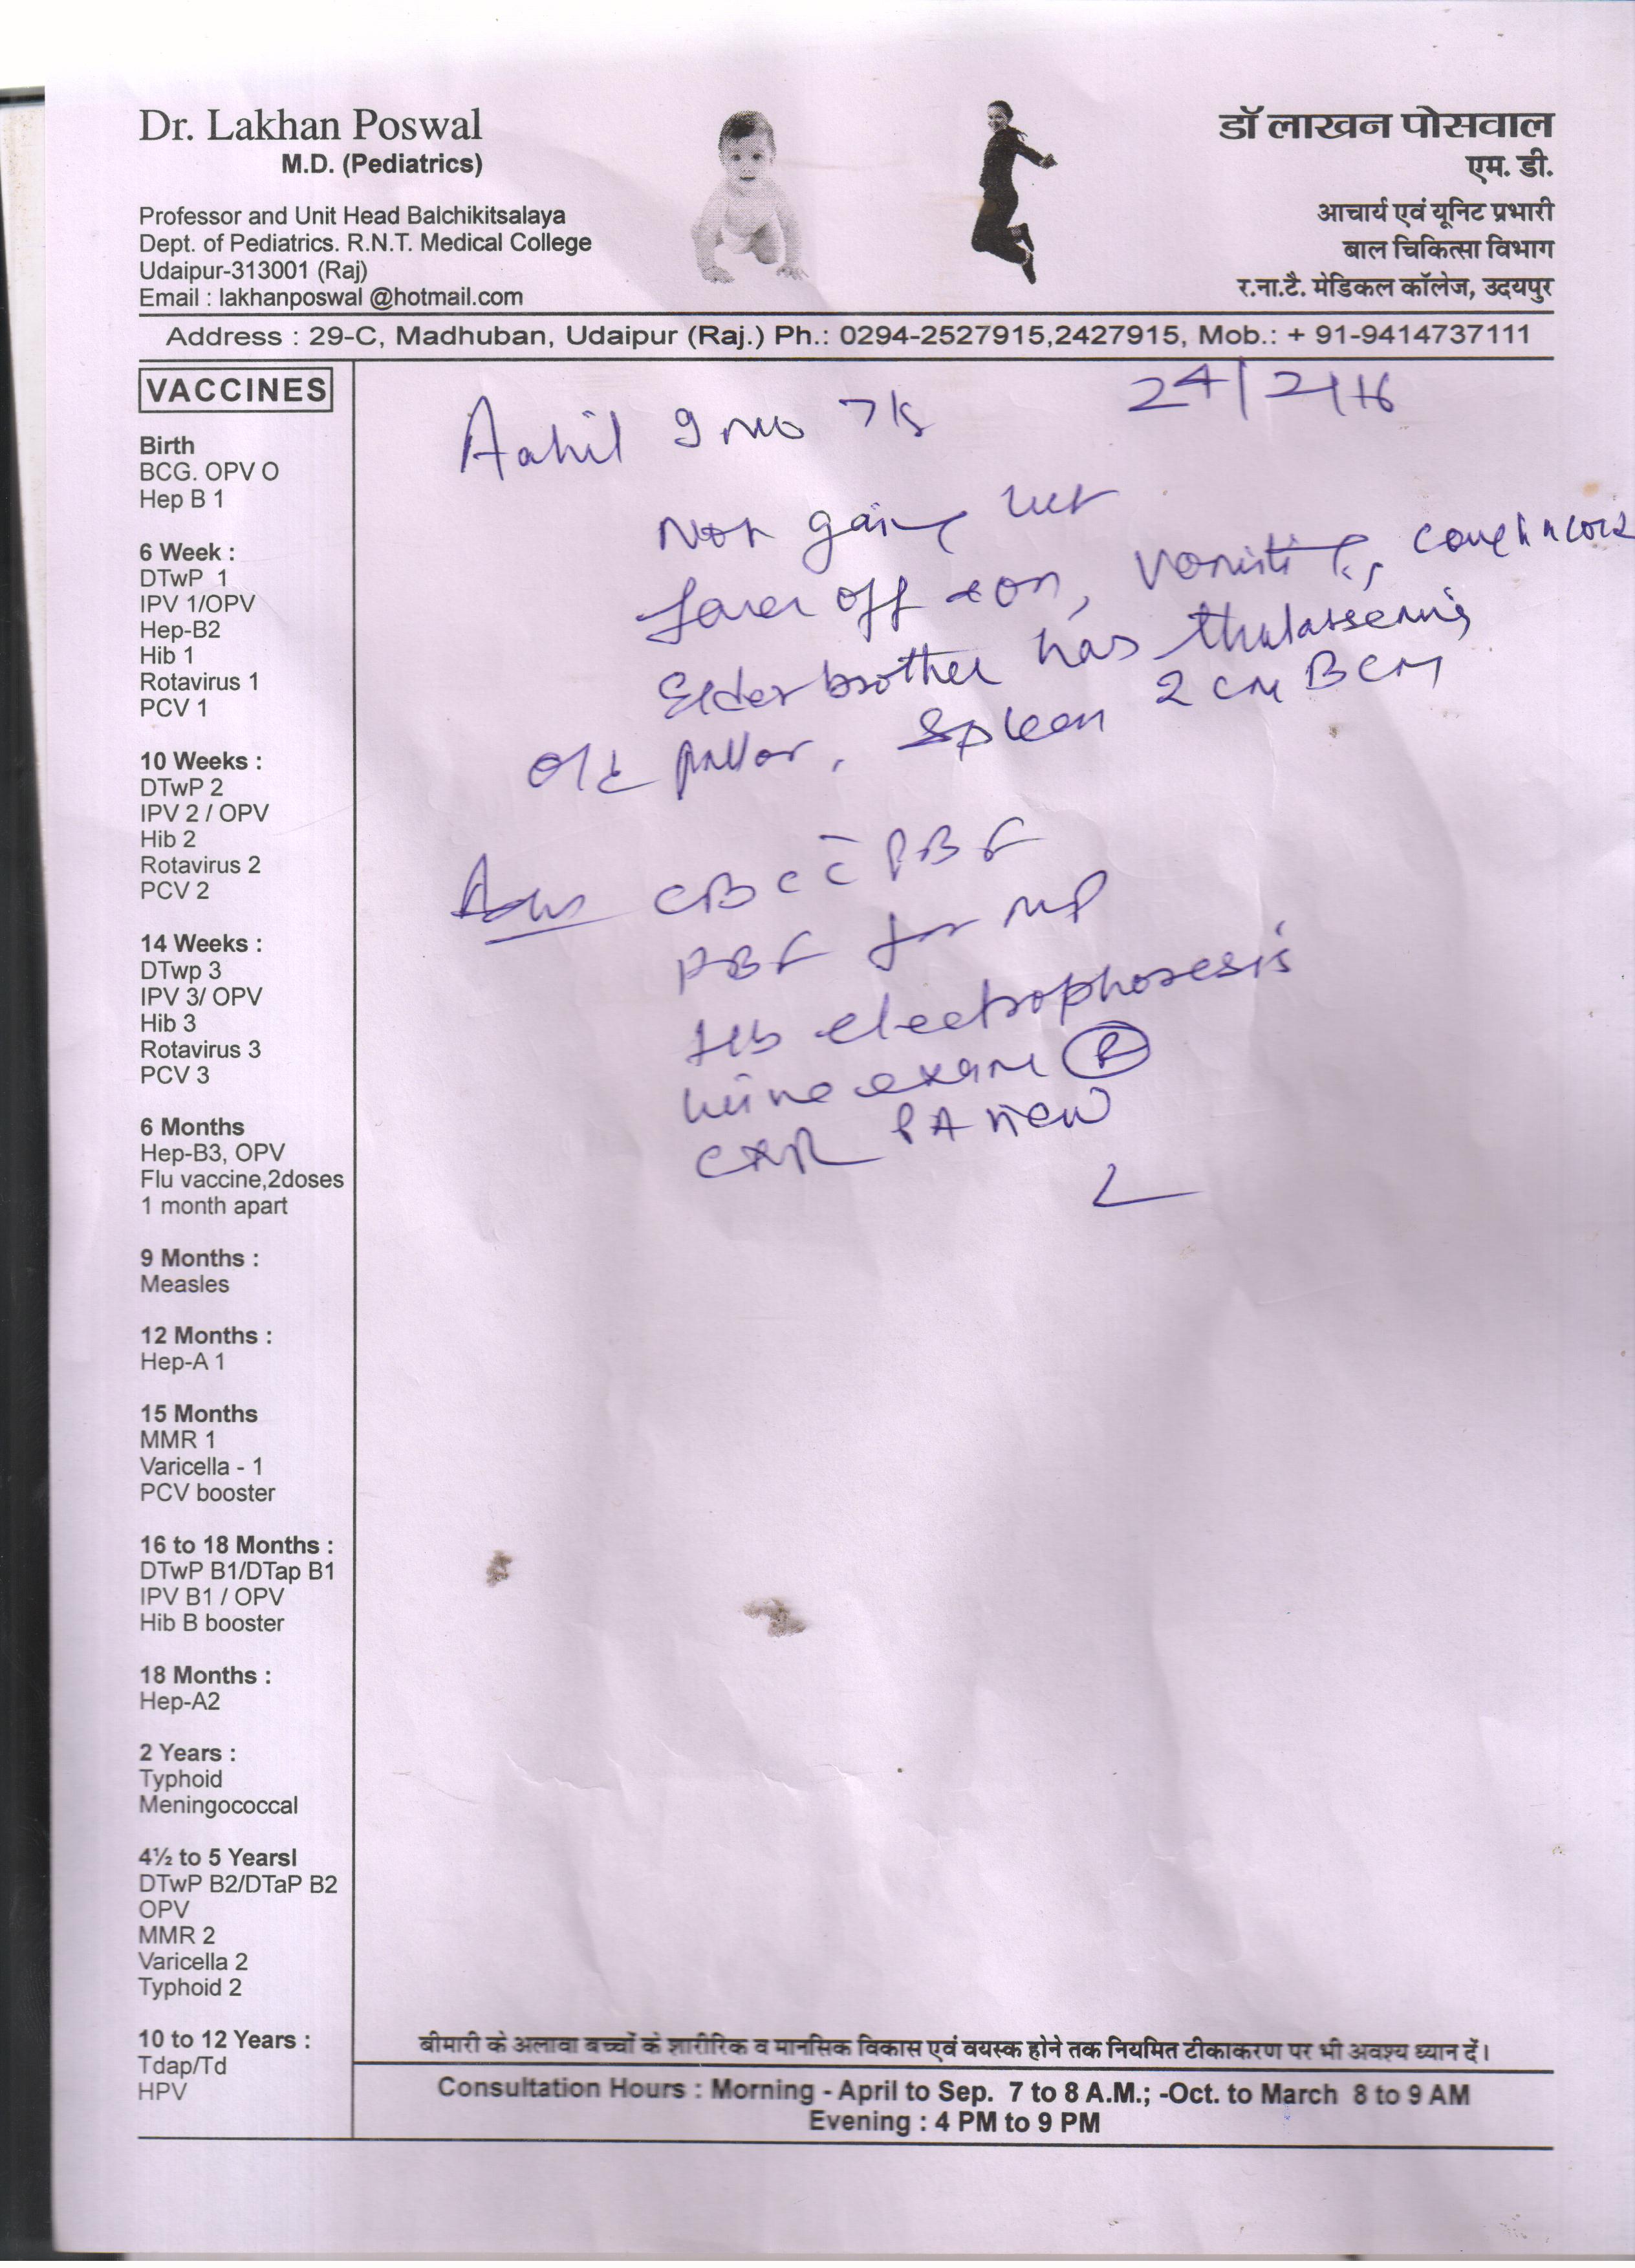 Dr. Lakhan Poswal
M.D. (Pediatrics)
Professor and Unit Head Balchikitsalaya
Dept. of Pediatrics. R.N.T. Medical College
Udaipur-313001 (Raj)
Email : lakhanposwal @hotmail.com
डॉ लाखन पोसवाल
एम. डी.
आचार्य एवं यूनिट प्रभारी
बाल चिकित्सा विभाग
र.ना.टै. मेडिकल कॉलेज, उदयपुर
Address : 29-C, Madhuban, Udaipur (Raj.) Ph.: 0294-2527915,2427915, Mob.: + 91-9414737111
VACCINES
Birth
BCG. OPV O
Hep B 1
6 Week :
DTwP 1
IPV 1/OPV
Hep-B2
Hib 1
Rotavirus 1
PCV 1
10 Weeks :
DTwP 2
IPV 2 / OPV
Hib 2
Rotavirus 2
PCV 2
14 Weeks :
DTwp 3
IPV 3/ OPV
Hib 3
Rotavirus 3
PCV 3
6 Months
Hep-B3, OPV
Flu vaccine,2doses
1 month apart
9 Months :
Measles
12 Months :
Hep-A 1
15 Months
MMR 1
Varicella - 1
PCV booster
16 to 18 Months :
DTwP B1/DTap B1
IPV B1 / OPV
Hib B booster
18 Months :
Hep-A2
2 Years :
Typhoid
Meningococcal
4½ to 5 Yearsl
DTwP B2/DTaP B2
OPV
MMR 2
Varicella 2
Typhoid 2
10 to 12 Years :
Tdap/Td
HPV
24/2/16
Aahil 9 mo 7 k
Not gaing wt
fever off & on, vomiting, cough n cold
Elder brother has thalassemia
O/E pallor, Spleen 2 cm BCM
Adv CBC c̄ PBF
PBF for MP
Hb electrophoresis
Urine exam (R)
CXR PA view
बीमारी के अलावा बच्चों के शारीरिक व मानसिक विकास एवं वयस्क होने तक नियमित टीकाकरण पर भी अवश्य ध्यान दें।
Consultation Hours : Morning - April to Sep. 7 to 8 A.M.; -Oct. to March 8 to 9 AM
Evening : 4 PM to 9 PM